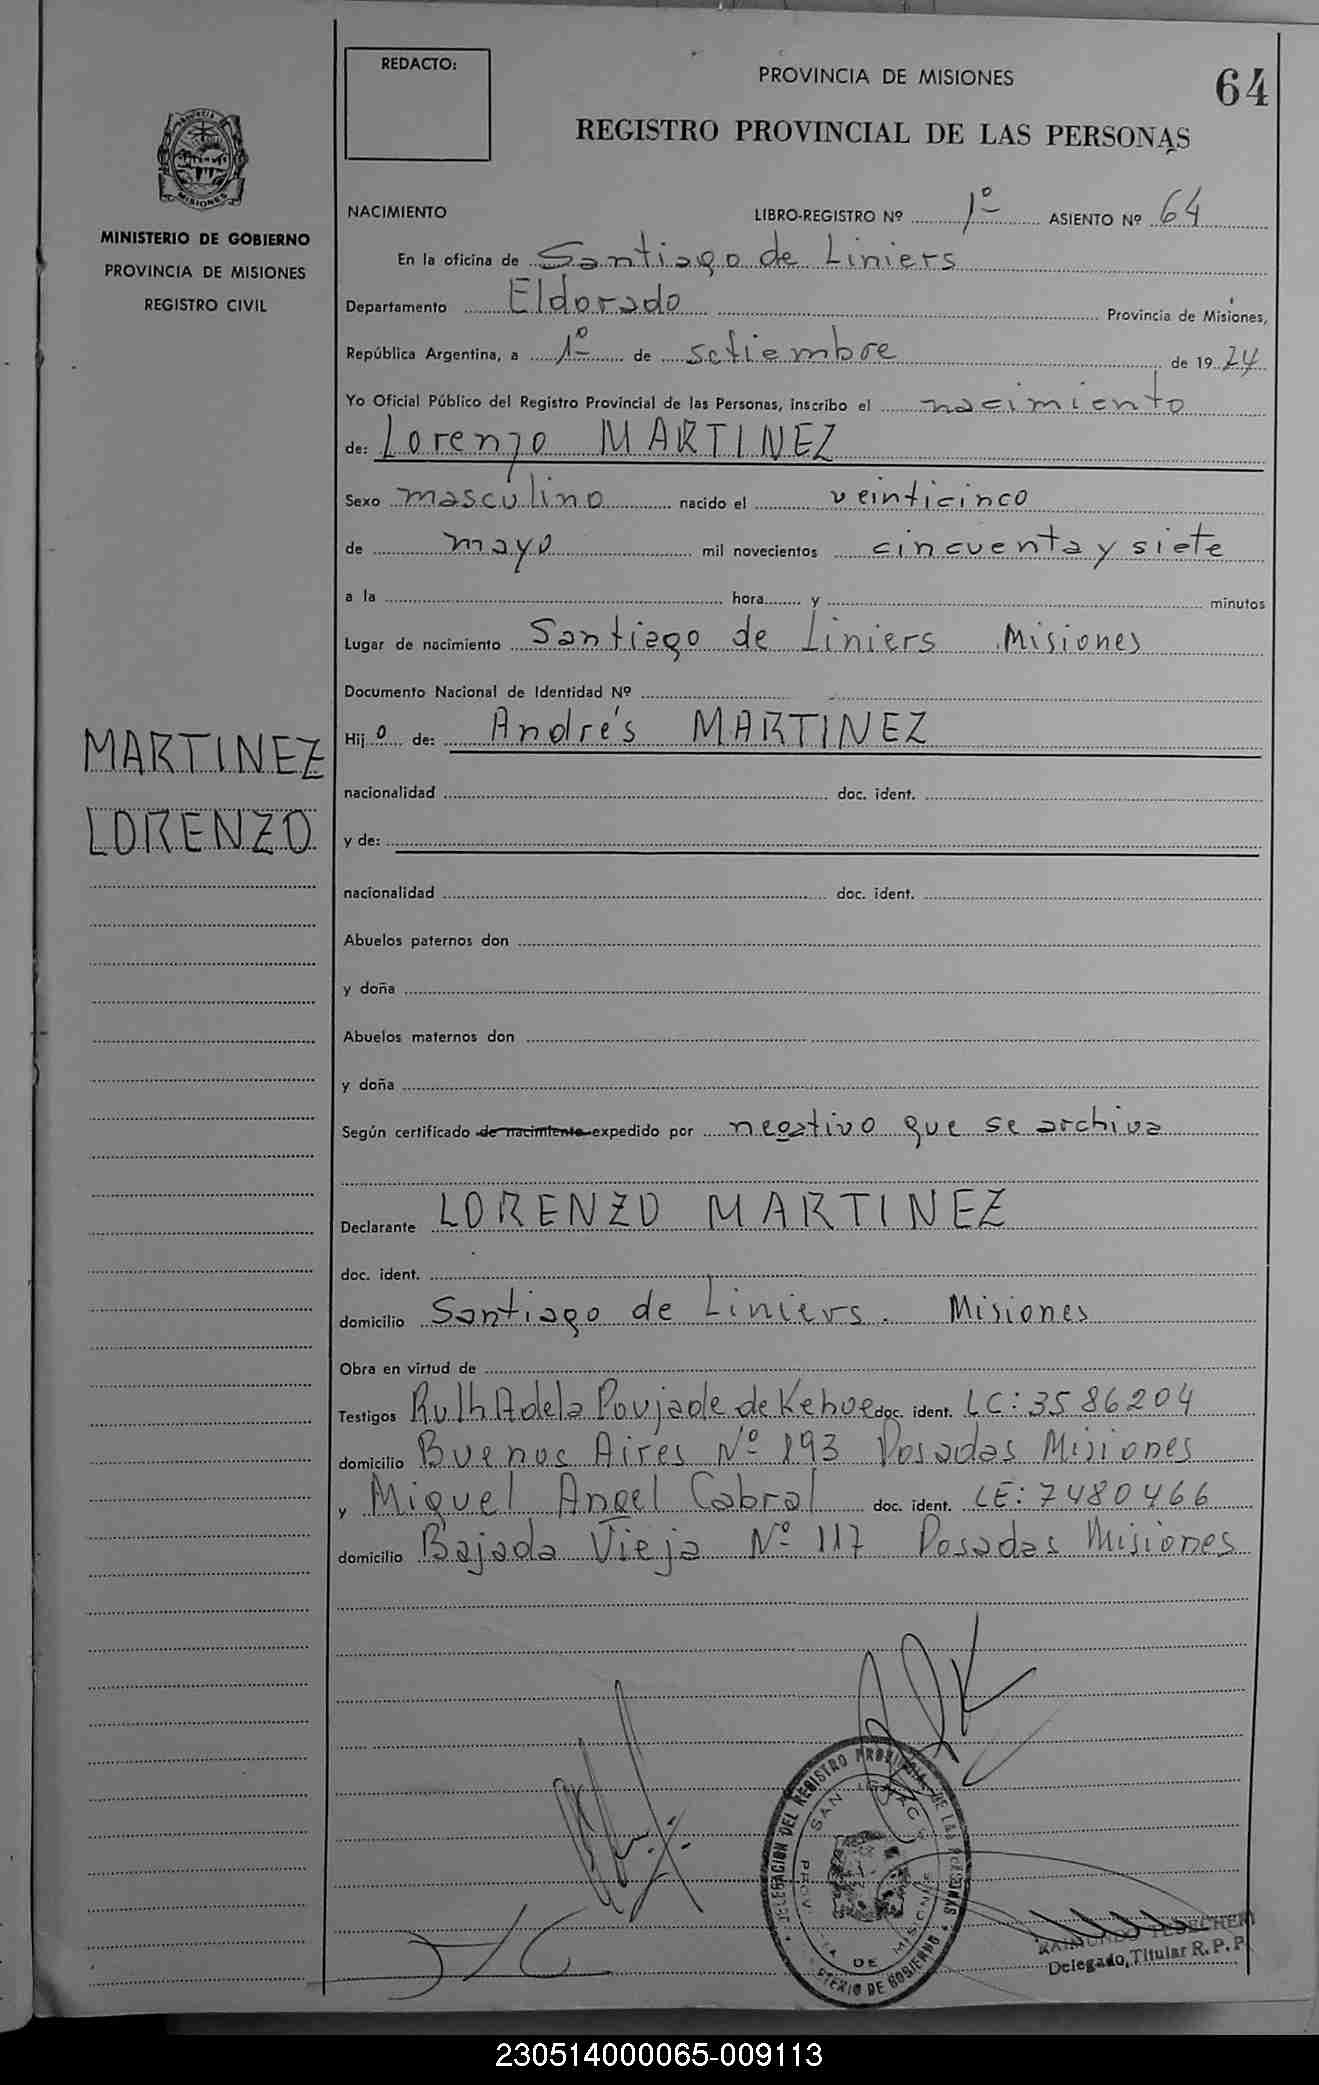 REDACTO:
PROVINCIA DE MISIONES
64
REGISTRO PROVINCIAL DE LAS PERSONAS
MISIONES
MINISTERIO DE GOBIERNO
PROVINCIA DE MISIONES
REGISTRO CIVIL
NACIMIENTO LIBRO-REGISTRO Nº 1º ASIENTO Nº 64
En la oficina de Santiago de Liniers
Departamento Eldorado Provincia de Misiones,
República Argentina, a 1º de setiembre de 1974
Yo Oficial Público del Registro Provincial de las Personas, inscribo el nacimiento
de: Lorenzo MARTINEZ
Sexo masculino nacido el veinticinco
de mayo mil novecientos cincuenta y siete
a la hora y minutos
Lugar de nacimiento Santiago de Liniers Misiones
Documento Nacional de Identidad Nº
Hij o de: Andrés MARTINEZ
MARTINEZ
LORENZO
nacionalidad doc. ident.
y de:
nacionalidad doc. ident.
Abuelos paternos don
y doña
Abuelos maternos don
y doña
Según certificado de nacimiento expedido por negativo que se archiva
Declarante LORENZO MARTINEZ
doc. ident.
domicilio Santiago de Liniers. Misiones
Obra en virtud de
Testigos Ruth Adela Poujade de Kehoe doc. ident. LC: 3586204
domicilio Buenos Aires Nº 193 Posadas Misiones
y Miguel Angel Cabral doc. ident. LE: 7480466
domicilio Bajada Vieja Nº 117 Posadas Misiones
DELEGACION DEL REGISTRO PROVINCIAL DE LAS PERSONAS
SAN IGNACIO
PROVINCIA DE MISIONES
MINISTERIO DE GOBIERNO
RAIMUNDO
Delegado Titular R. P. P.
230514000065-009113